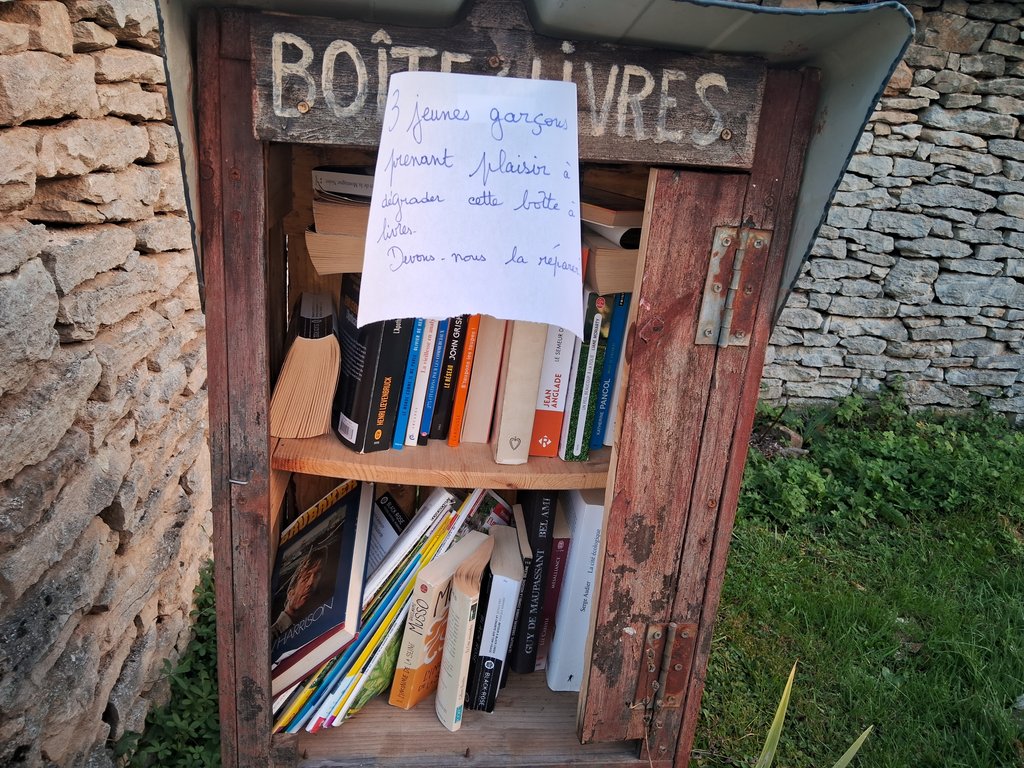 BOÎTE LIVRES
3 jeunes garçons
prenant plaisir à
dégrader cette boîte à
livres.
Devons-nous la réparer
HENRI LŒVENBRUCK
JOHN GRISHAM
JEAN ANGLADE
LE SEMEUR D
KATHERINE PANCOL
HARRISON
MUSSO
BLACK ROSE
GUY DE MAUPASSANT BEL AMI
Serge Audier La cité écologique